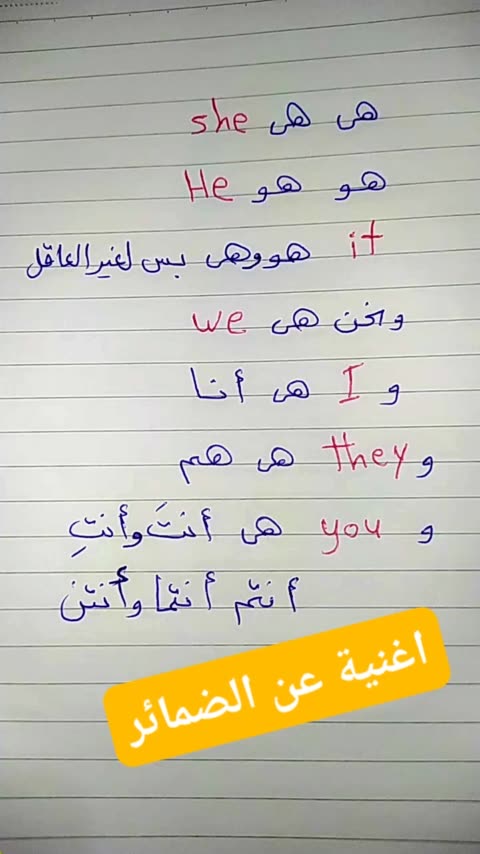 هى هى she
هو هو He
it هو وهى بس لغير العاقل
ونحن هى we
و I هى أنا
و they هى هم
و you هى أنتَ وأنتِ
أنتم أنتما وأنتن
اغنية عن الضمائر